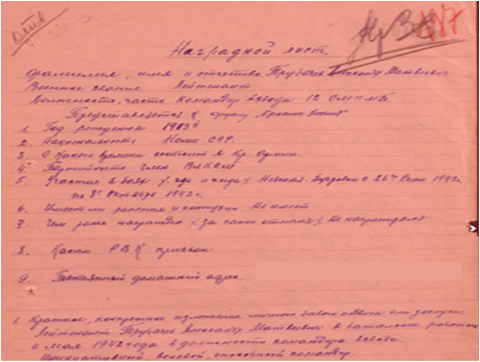 опись
Кр З К 187
Наградной лист.
Фамилия, имя и отчество. Трубачев Александр Матвеевич
Военное звание Лейтенант
Должность, часть Командир взвода 12
Представляется к ордену "Красная звезда"
1. Год рождения 1913 г
2. Национальность Коми ССР.
3. С какого времени состоит в Кр. Армии.
4. Партийность член ВЛКСМ
5. Участие в боях /: где и когда / Невская 26го Сент 1942г
по 8го Октября 1942г.
6. Имеет ли ранения и контузии Не имеет
7. Чем ранее награжден / За какие отличия / Не награждался
8. Каким Р.В.К призван
9. Постоянный домашний адрес.
1. Краткое, конкретное изложение личного боевого подвига или заслуги:
Лейтенант Трубачев Александр Матвеевич в батальоне работает
с мая 1942 года в должности командира взвода.
Инициативный, волевой, способный командир.